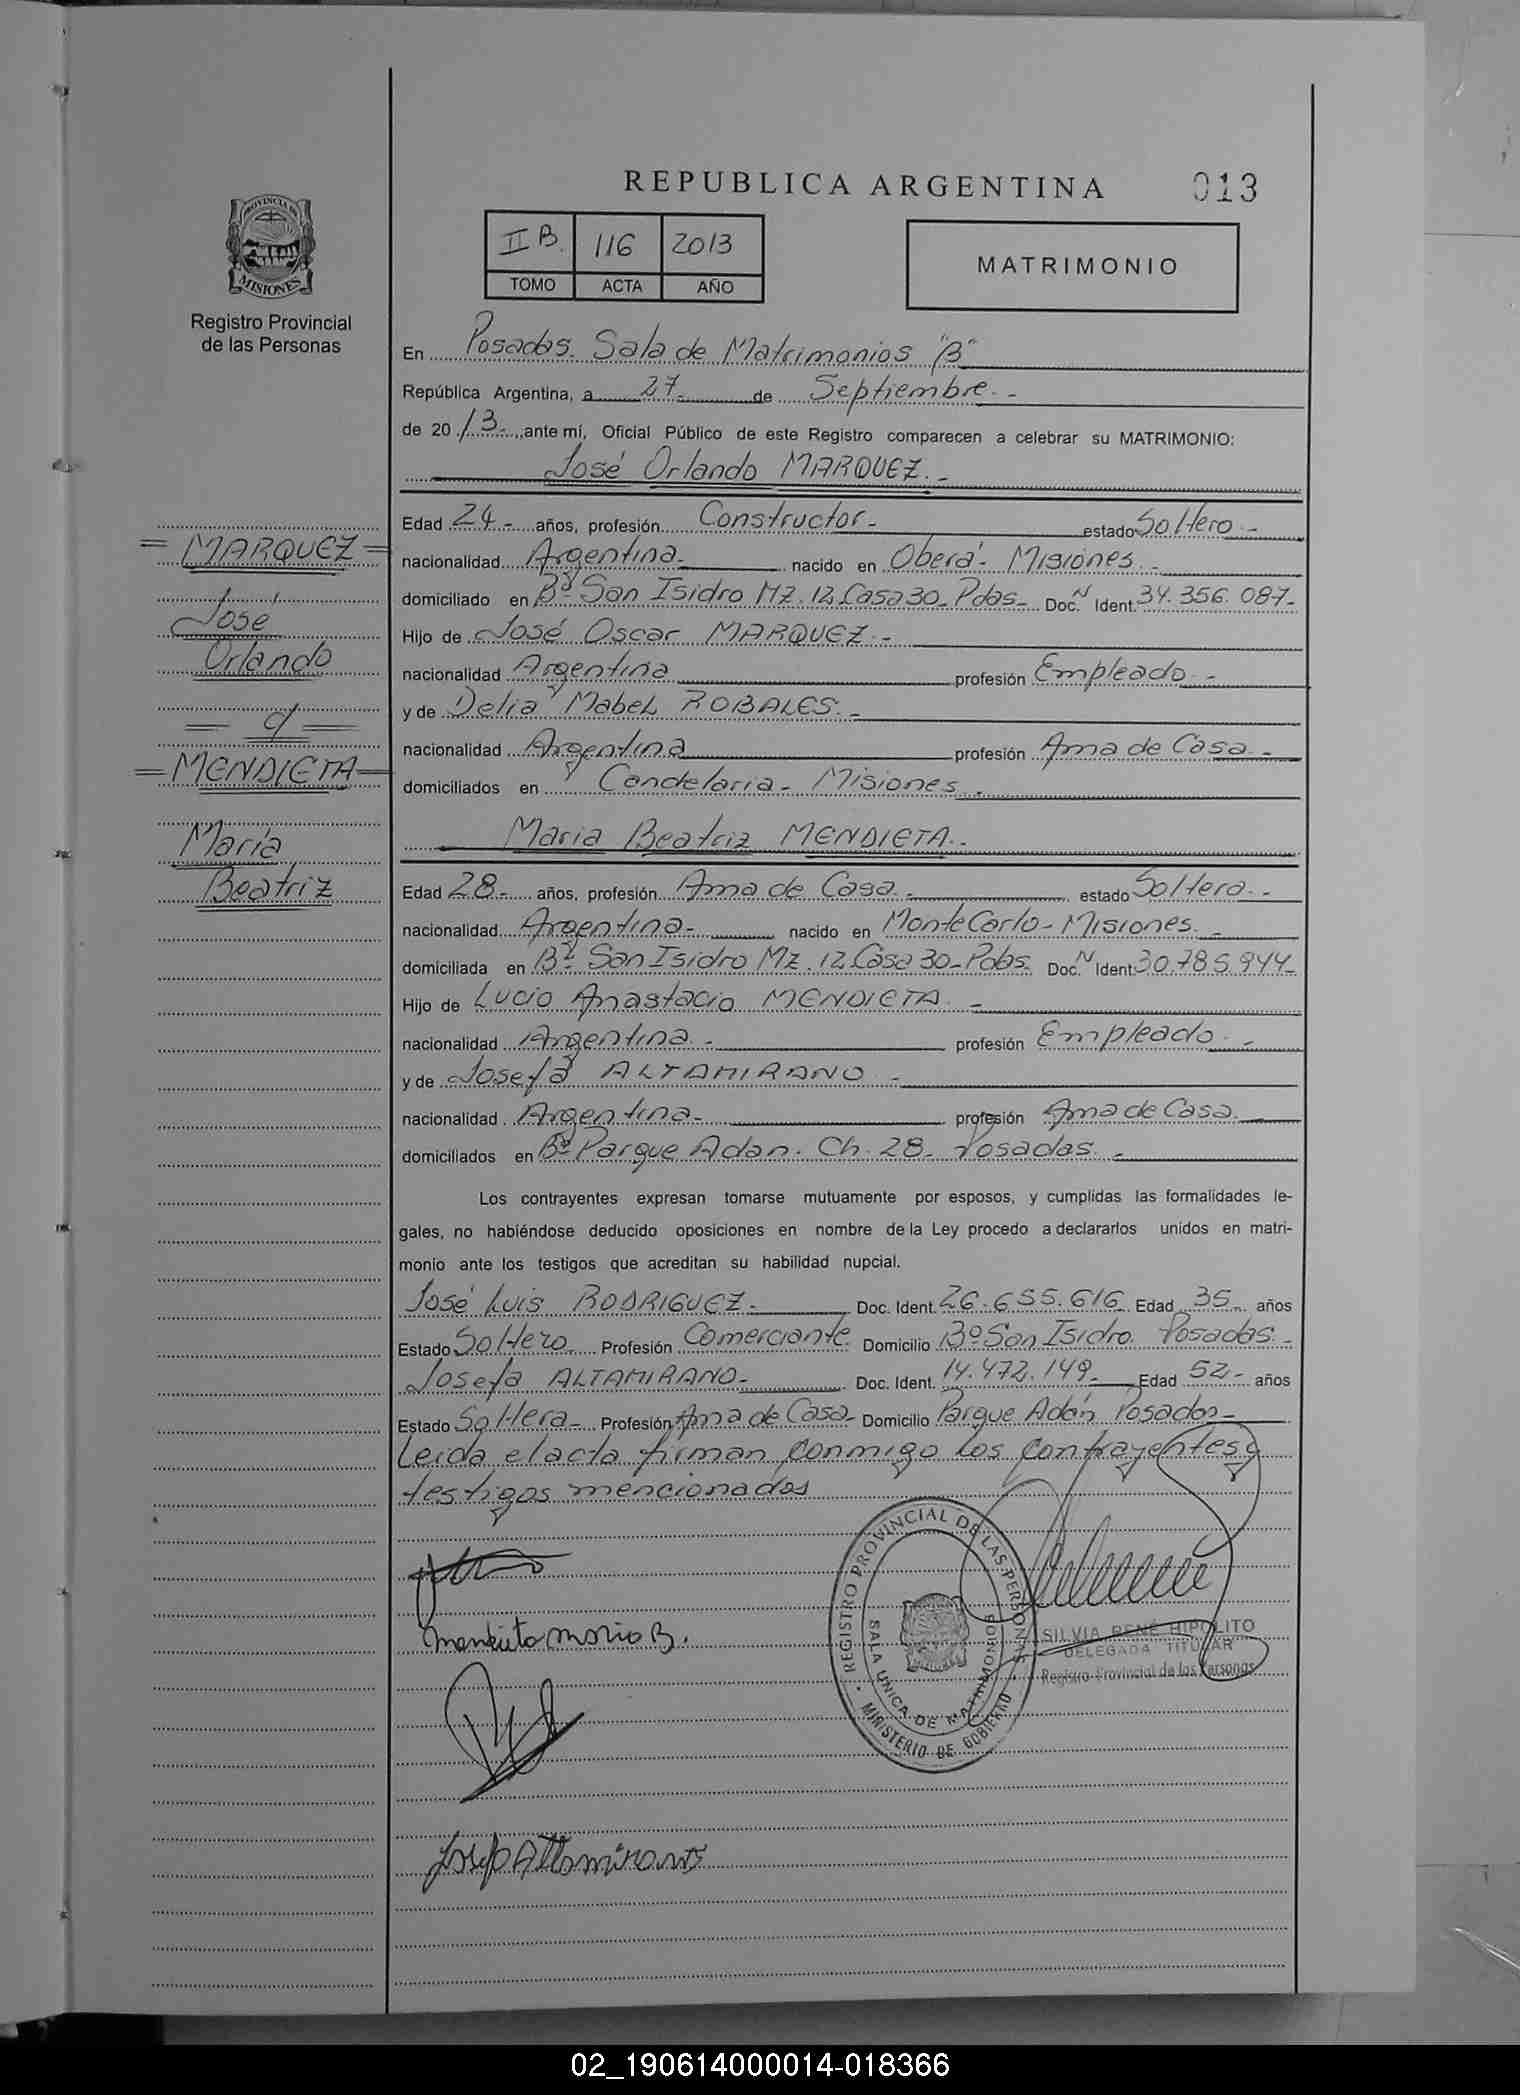 REPUBLICA ARGENTINA 013
PROVINCIA DE
MISIONES
Registro Provincial
de las Personas
II B. 116 2013
TOMO ACTA AÑO
MATRIMONIO
En Posadas. Sala de Matrimonios "B"
República Argentina, a 27 de Septiembre.-
de 2013.- ante mí, Oficial Público de este Registro comparecen a celebrar su MATRIMONIO:
José Orlando MARQUEZ.-
= MARQUEZ =
José
Orlando
= c/ =
= MENDIETA =
María
Beatriz
Edad 24- años, profesión Constructor- estado Soltero.-
nacionalidad Argentina- nacido en Oberá- Misiones.-
domiciliado en Bº San Isidro Mz. 12, Casa 30- Pdas- Doc. N Ident. 34.356.087-
Hijo de José Oscar MARQUEZ.-
nacionalidad Argentina profesión Empleado.-
y de Delia Mabel ROBALES.-
nacionalidad Argentina profesión Ama de Casa-
domiciliados en Candelaria- Misiones.
Maria Beatriz MENDIETA.-
Edad 28- años, profesión Ama de Casa.- estado Soltera.-
nacionalidad Argentina- nacido en MonteCarlo- Misiones.-
domiciliada en Bº San Isidro Mz. 12, Casa 30- Pdas. Doc. N Ident 30.785.944-
Hijo de Lucio Anastacio MENDIETA.-
nacionalidad Argentina.- profesión Empleado.-
y de Josefa ALTAMIRANO-
nacionalidad Argentina- profesión Ama de Casa.
domiciliados en Bº Parque Adan. Ch. 28- Posadas.-
Los contrayentes expresan tomarse mutuamente por esposos, y cumplidas las formalidades le-
gales, no habiéndose deducido oposiciones en nombre de la Ley procedo a declararlos unidos en matri-
monio ante los testigos que acreditan su habilidad nupcial.
José Luis RODRIGUEZ- Doc. Ident. 26.655.616 Edad 35- años
Estado Soltero Profesión Comerciante. Domicilio Bº San Isidro. Posadas.-
Josefa ALTAMIRANO- Doc. Ident. 14.472.149- Edad 52- años
Estado Soltera- Profesión Ama de Casa- Domicilio Parque Adán Posadas-
Leida el acta firman conmigo los contrayentes y
testigos mencionados
Mendieta Maria B.
REGISTRO PROVINCIAL DE LAS PERSONAS
SALA UNICA DE MATRIMONIOS
MINISTERIO DE GOBIERNO
SILVIA RENÉ HIPOLITO
DELEGADA TITULAR
Registro Provincial de las Personas
Josefa Altamirano
02_190614000014-018366